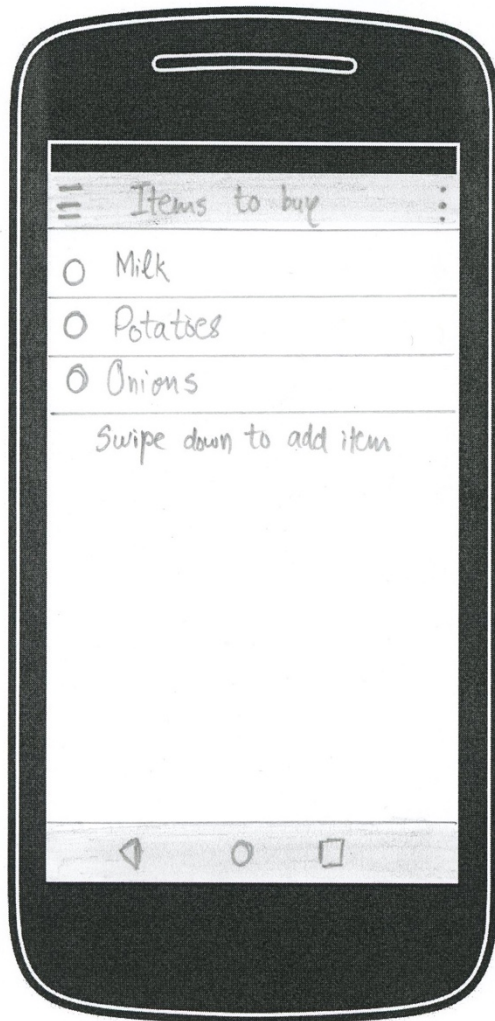 Items to buy
Milk
Potatoes
Onions
Swipe down to add item